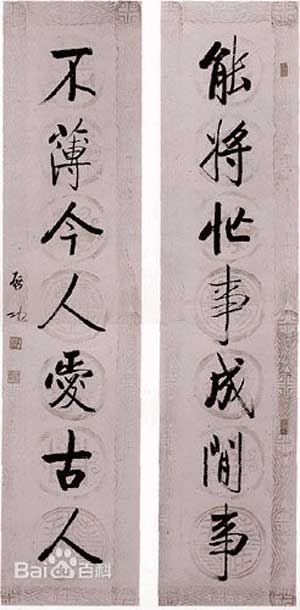 能将忙事成閒事
不薄今人愛古人
啟功
Bai百科